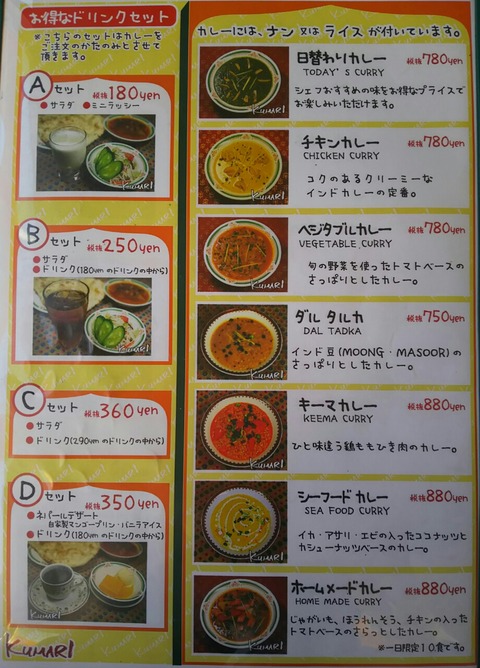 お得なドリンクセット
※こちらのセットはカレーを
ご注文のかたのみとさせて
頂きます。
A セット 税抜180yen
●サラダ ●ミニラッシー
KUMARI
B セット 税抜250yen
●サラダ
●ドリンク(180yenのドリンクの中から)
KUMARI
C セット 税抜360yen
●サラダ
●ドリンク(290yenのドリンクの中から)
D セット 税抜350yen
●ネパールデザート
自家製マンゴープリン・バニラアイス
●ドリンク(180yenのドリンクの中から)
KUMARI
KUMARI
カレーには、ナン又はライスが付いています。
日替わりカレー 税抜780yen
TODAY'S CURRY
シェフおすすめの味をお得なプライスで
お楽しみいただけます。
KUMARI
チキンカレー 税抜780yen
CHICKEN CURRY
コクのあるクリーミーな
インドカレーの定番。
KUMARI
ベジタブルカレー 税抜780yen
VEGETABLE CURRY
旬の野菜を使ったトマトベースの
さっぱりとしたカレー。
KUMARI
ダル タルカ 税抜750yen
DAL TADKA
インド豆(MOONG・MASOOR)の
さっぱりとしたカレー。
KUMARI
キーマカレー 税抜880yen
KEEMA CURRY
ひと味違う鶏ももひき肉のカレー。
KUMARI
シーフードカレー 税抜880yen
SEA FOOD CURRY
イカ・アサリ・エビの入ったココナッツと
カシューナッツベースのカレー。
KUMARI
ホームメードカレー 税抜880yen
HOME MADE CURRY
じゃがいも、ほうれんそう、チキンの入った
トマトベースのさらっとしたカレー。
※一日限定10食です。
KUMARI